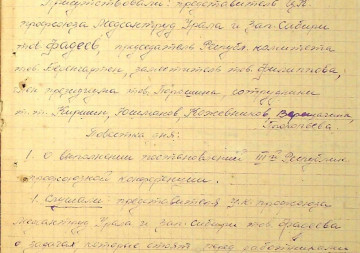 Присутствовали: представитель ЦК
профсоюза Медсантруд Урала и Зап-Сибири
тов. Фадеев, председатель Республ. комитета
тов. заместитель тов. Филиппова,
член президиума тов. Порошина, сотрудники
т. т. Киршин, Юшманов, Кожевников,
Повестка дня:
1. О выполнении постановлений III й Республик
профсоюзной конференции.
1. Слушали: представителя ЦК профсоюза
медсантруд Урала и Зап-Сибири тов. Фадеева
о задачах которые стоят перед работниками